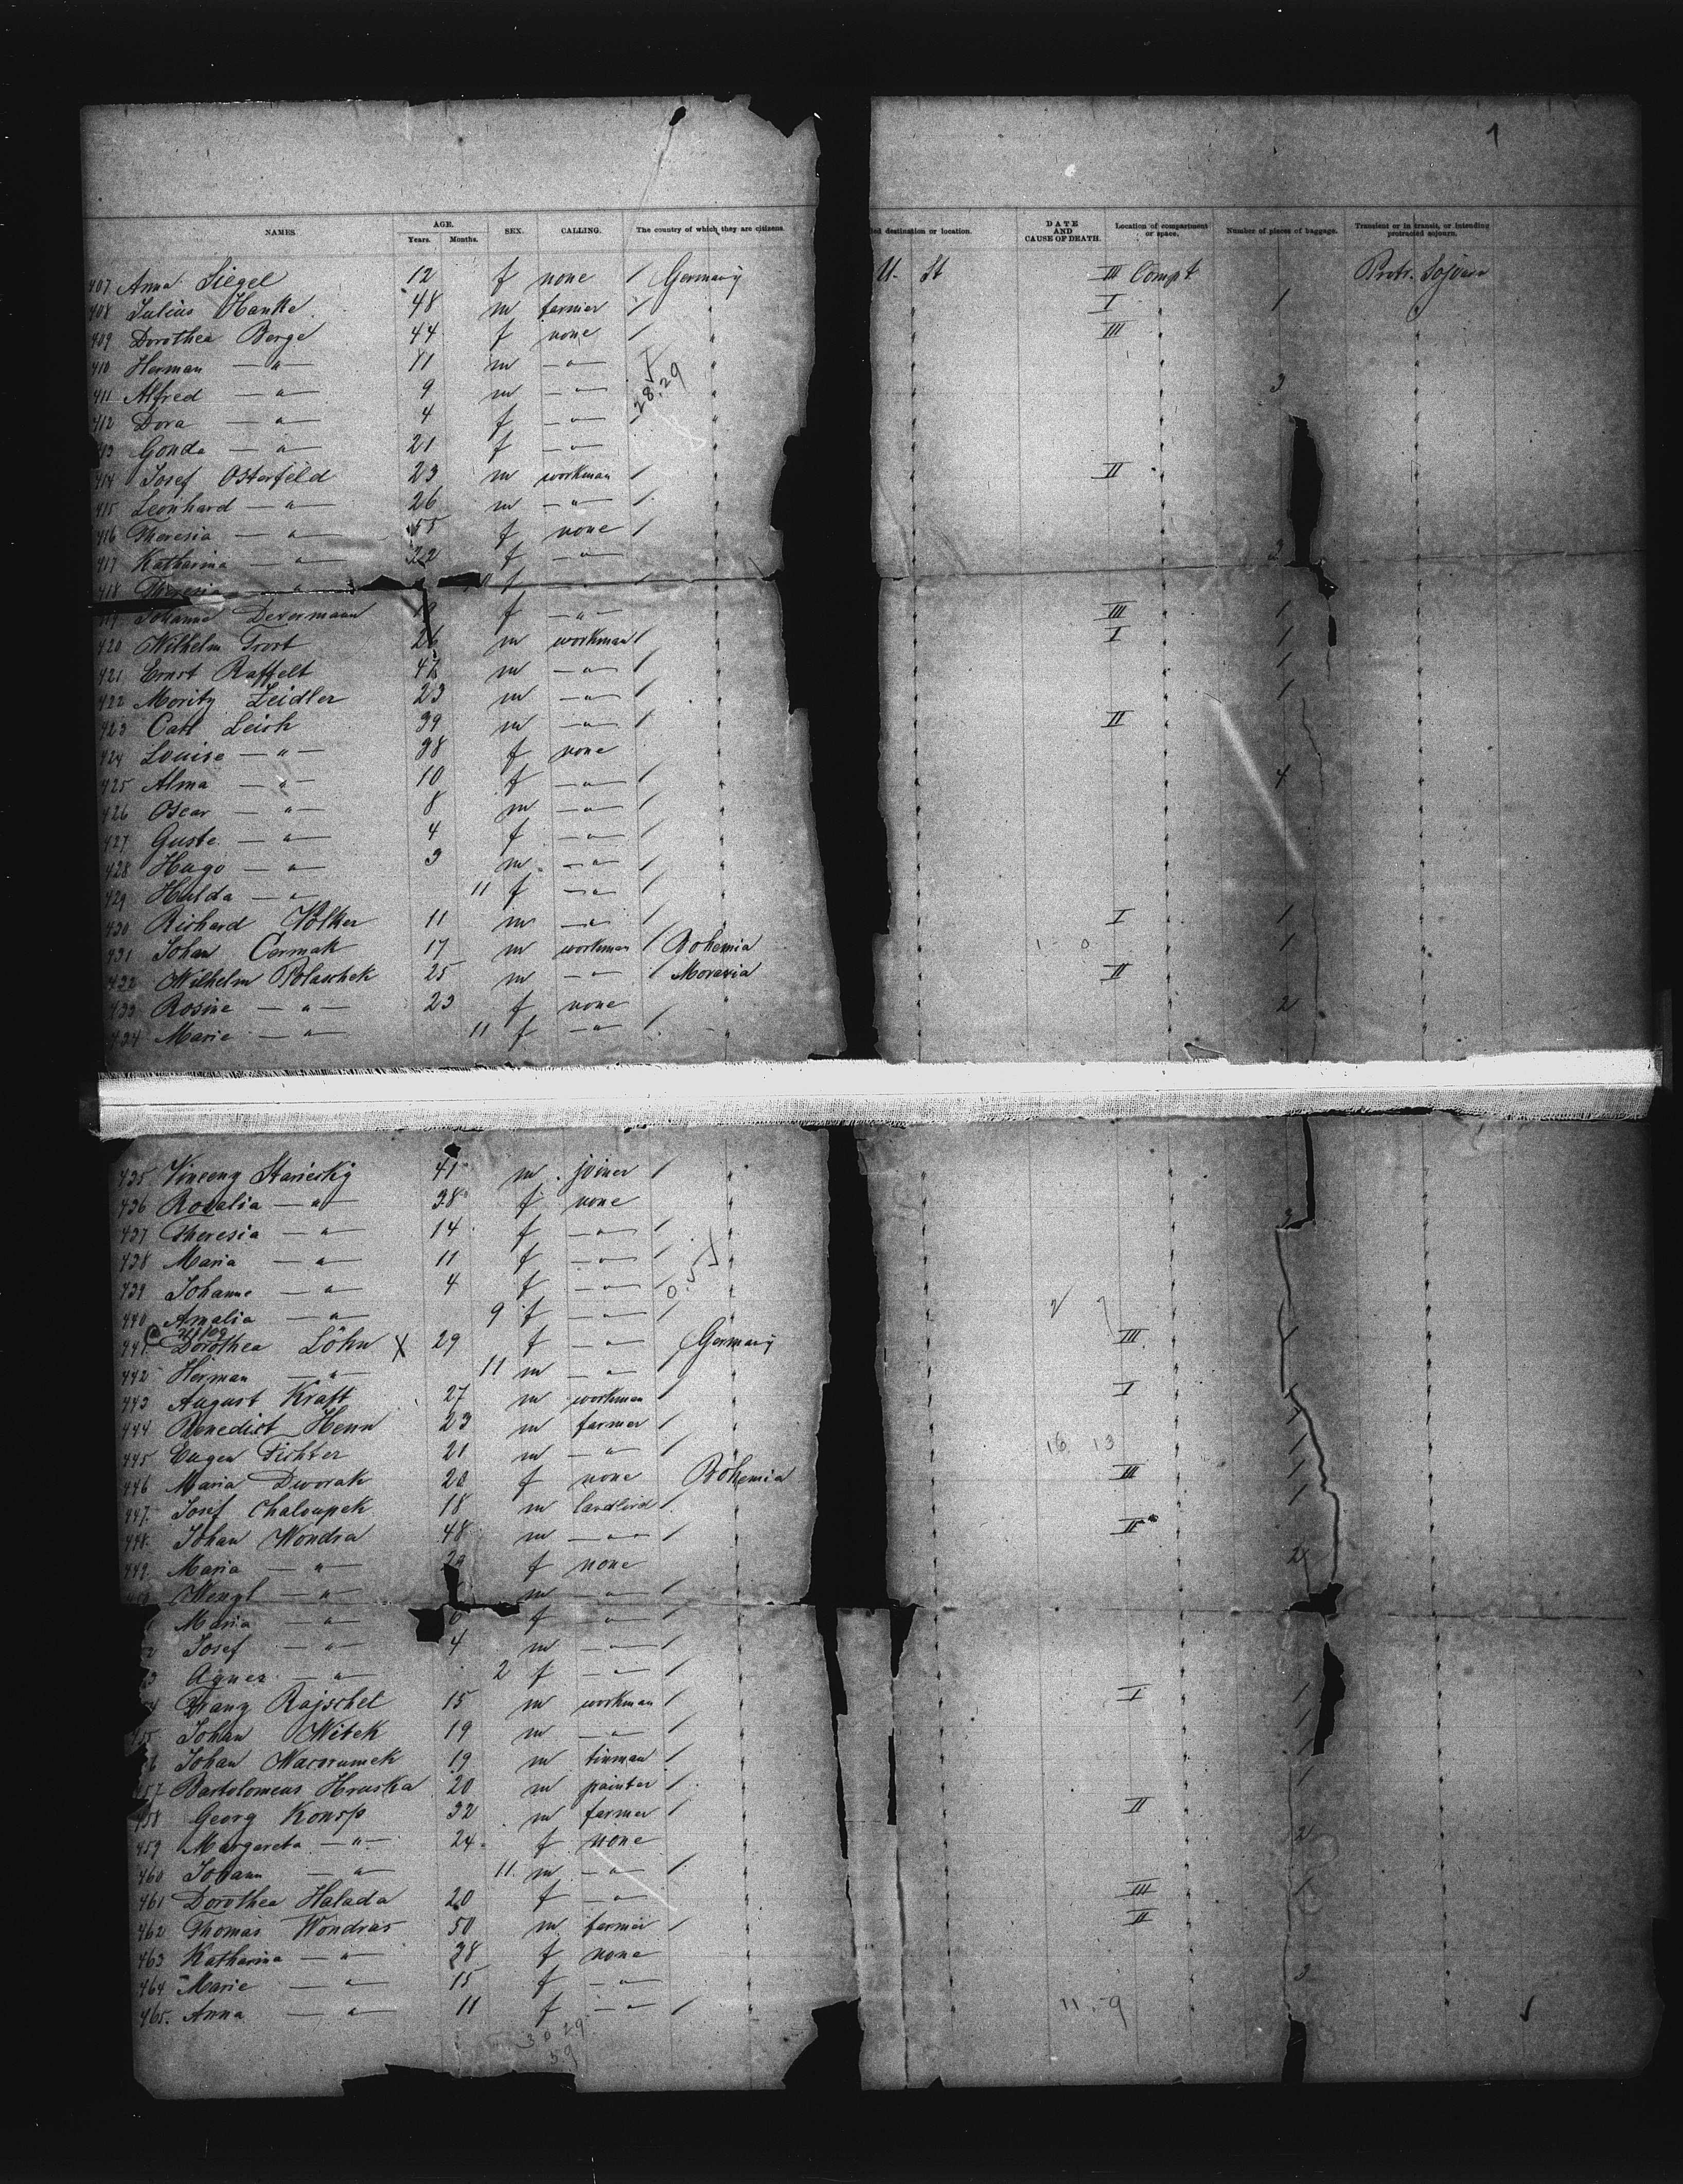 1
NAMES. AGE. Years. Months. SEX. CALLING. The country of which they are citizens. destination or location. DATE AND CAUSE OF DEATH. Location of compartment or space. Number of pieces of baggage. Transient or in transit, or intending protracted sojourn.
407 Anna Siegel 12 f none / Germany U. St III Compt Protr. Sojourn
408 Julius Hanke 48 m farmer / " I 1
409 Dorothea Berge 44 f none / " III
410 Herman — " — 11 m — " —
411 Alfred — " — 9 m — " — 28.29 3
412 Dora — " — 4 f — " —
413 Gonda — " — 21 f — " —
414 Josef Osterfeld 23 m workman / II
415 Leonhard — " — 26 m — " — /
416 Theresia — " — 55 f none /
417 Katharina — " — 22 f — " — 3
418 Theresia — " — f — " —
419 Johanna Devermann f — " — III 1
420 Wilhelm Trost 26 m workman / I 1
421 Ernst Raffelt 47 m — " — / 1
422 Moritz Zeidler 23 m — " — / 1
423 Carl Leish 39 m — " — / II
424 Louise — " — 38 f none
425 Alma — " — 10 f — " — / 4
426 Oscar — " — 8 m — " — /
427 Guste — " — 4 f — " — /
428 Hugo — " — 3 m — " — /
429 Hulda — " — 11 f — " — /
430 Richard Völker 11 m — " — / I 1
431 Johan Cermak 17 m workman / Bohemia 1 - 0 1
432 Wilhelm Polaschek 25 m — " — / Moravia II
433 Rosine — " — 23 f none 2
434 Marie — " — 11 f — " — /
435 Vincenz Stariesky 41 m joiner /
436 Rosalia — " — 38 f none
437 Theresia — " — 14 f — " — / 3
438 Maria — " — 11 f — " — /
439 Johanne — " — 4 f — " — /
440 Amalia — " — 9 f — " — /
441 Dorothea Löhn X 29 f — " — Germany III 1
442 Herman — " — 11 m — " —
443 August Kraft 27 m workman / I 1
444 Benedict Henn 23 m farmer / 1
445 Eugen Fichter 21 m — " — / 16 13 1
446 Maria Dworak 20 f none Bohemia III 1
447 Josef Chaloupek 18 m landlord / 1
448 Johan Wondra 48 m — " — / II
449 Maria — " — f none 2
Wenzl — " — m — " — /
Maria — " — 6 f — " — /
2 Josef — " — 4 m — " — /
3 Agnes — " — 2 f — " — /
4 Franz Rajschel 15 m workman / I 1
455 Johan Witek 19 m — " — / 1
6 Johan Nacoramek 19 m tinman / 1
457 Bartolomeus Hruska 20 m painter / 1
458 Georg Konop 32 m farmer / II
459 Margareta — " — 24 f none 2
460 Johann — " — 11 m — " — /
461 Dorothea Halada 20 f — " — III 1
462 Thomas Wondras 50 m farmer / II
463 Katharina — " — 38 f none
464 Marie — " — 15 f — " — 3
465. Anna — " — 11 f — " — / 11.9
30 29
59